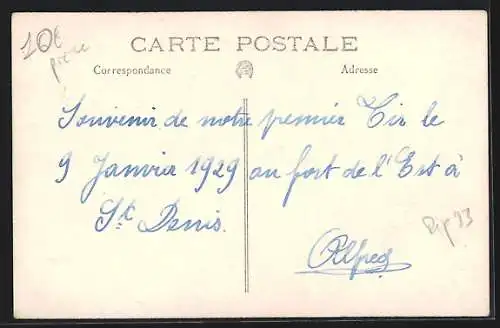 10€
CARTE POSTALE
Correspondance
Adresse
Souvenir de notre premier Tir le
9 Janvier 1929 au fort de l'Est à
St Denis.
Alfred